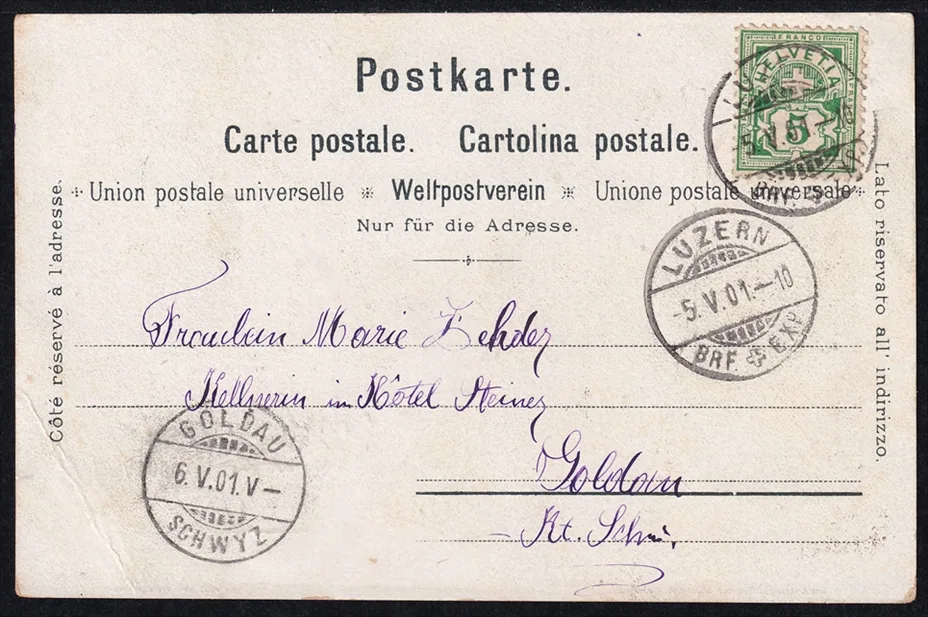 Postkarte.
Carte postale. Cartolina postale.
Union postale universelle * Weltpostverein * Unione postale universale
Nur für die Adresse.
Côté réservé à l'adresse.
Lato riservato all' indirizzo.
FRANCO
HELVETIA
5
5.V.01.–10
BRF.
LUZERN
-5.V.01.–10
BRF. EXP.
Fräulein Marie
Kellnerin im Hôtel Steiner
Goldau
Kt. Schw.
GOLDAU
6.V.01.V–
SCHWYZ